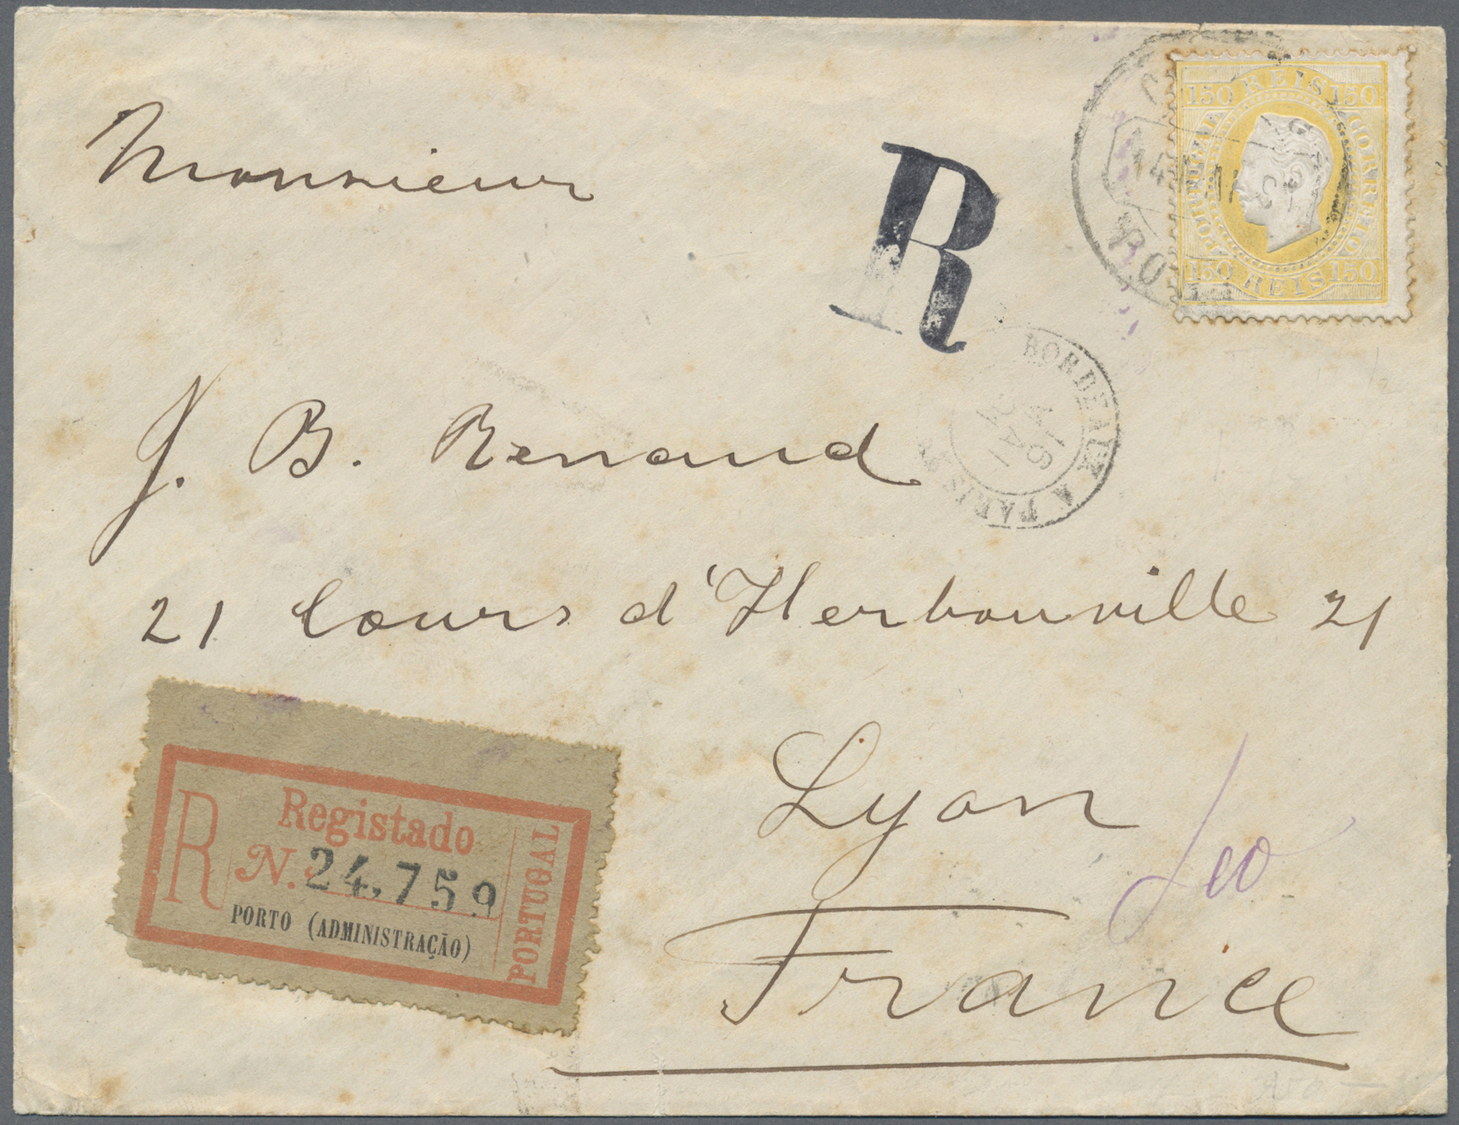 Monsieur
J. B. Renaud
21 Cours d'Herbouville 21
Lyon
France
R
150 REIS 150
PORTUGAL
CORREIO
150 REIS 150
BORDEAUX A PARIS
16
MAI
R
Registado
N. 24.759
PORTO (ADMINISTRAÇÃO)
PORTUGAL